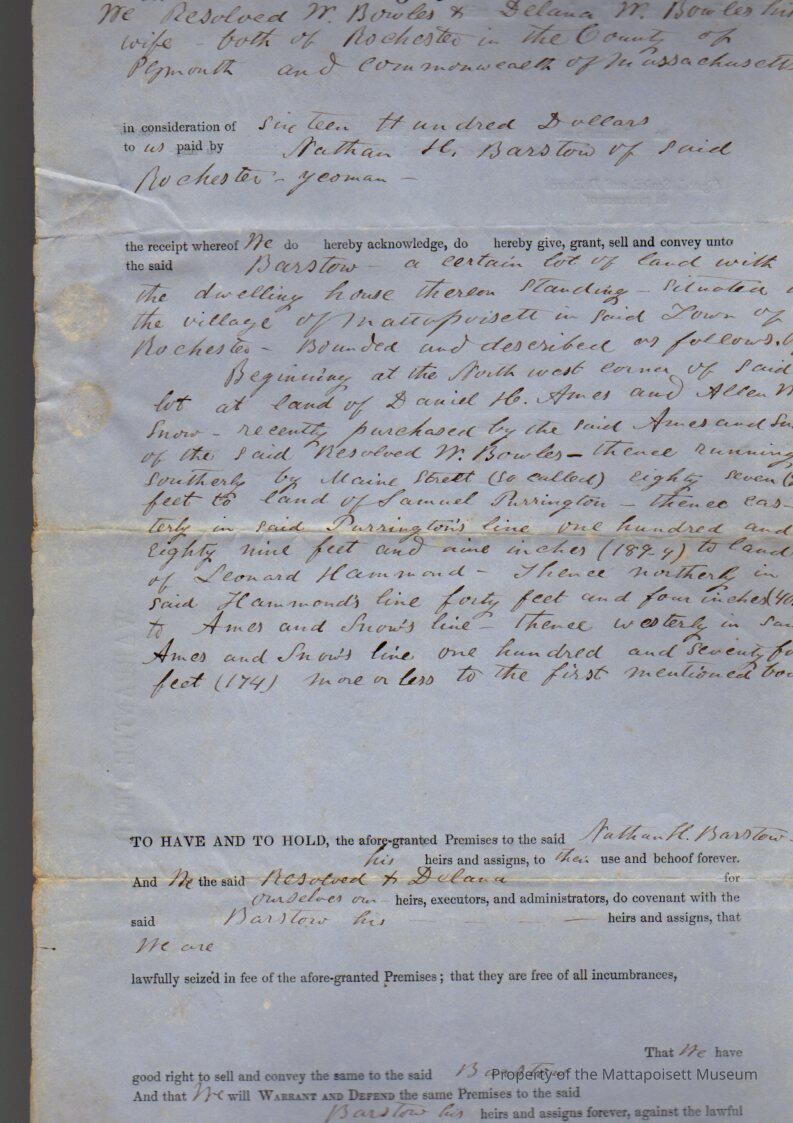 We Resolved W. Bowles & Delana W. Bowles his
wife - both of Rochester in the County of
Plymouth and Commonwealth of Massachusetts
in consideration of Sixteen Hundred Dollars
to us paid by Nathan H. Barstow of said
Rochester - yeoman -
the receipt whereof We do hereby acknowledge, do hereby give, grant, sell and convey unto
the said Barstow - a certain lot of land with
the dwelling house thereon standing - situated
the village of Mattapoisett in said Town of
Rochester - Bounded and described as follows.
Beginning at the North west corner of said
lot at land of Daniel H. Ames and Allen
Snow - recently purchased by the said Ames and
of the said Resolved W. Bowles - thence running
southerly by Maine Strett (so called) eighty seven
feet to land of Samuel Purrington - thence eas-
terly in said Purrington's line one hundred and
eighty nine feet and nine inches (189-9) to land
of Leonard Hammond - Thence northerly in
said Hammond's line forty feet and four inches
to Ames and Snow's line - thence westerly in
Ames and Snow's line one hundred and seventy
feet (174) more or less to the first mentioned
TO HAVE AND TO HOLD, the afore-granted Premises to the said Nathan H. Barstow -
his heirs and assigns, to their use and behoof forever.
And We the said Resolved & Delana for
ourselves our heirs, executors, and administrators, do covenant with the
said Barstow his heirs and assigns, that
We are
lawfully seized in fee of the afore-granted Premises; that they are free of all incumbrances,
That We have
good right to sell and convey the same to the said Barstow
Property of the Mattapoisett Museum
And that We will WARRANT AND DEFEND the same Premises to the said
Barstow his heirs and assigns forever, against the lawful